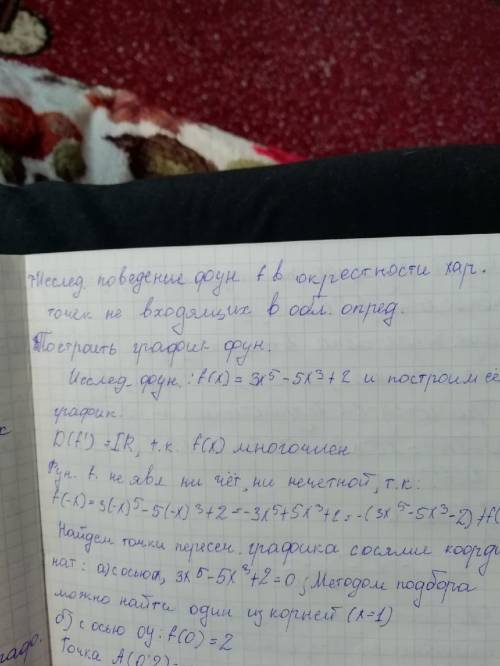 Исслед. поведение фун. f в окрестности хар.
точек не входящих в обл. опред.
Построить график фун.
Исслед. фун.: f(x) = 3x⁵-5x³+2 и построим её
график.
D(f') = IR, т.к. f(x) многочлен
Фун. f. не явл ни чёт, ни нечетной, т.к.
f(-x)=3(-x)⁵-5(-x)³+2=-3x⁵+5x³+2=-(3x⁵-5x³-2)≠f(
Найдем точки пересеч. графика с осями коорди
нат: а) с осью 3x⁵-5x³+2=0; Методом подбора
можно найти один из корней (x=1)
б) с осью oy: f(0)=2
Точка A(0;2)